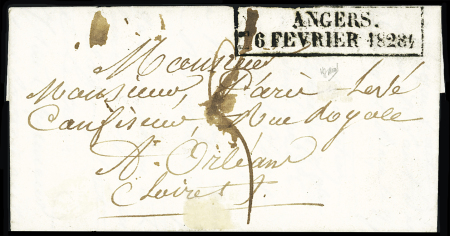 ANGERS.
6 FEVRIER 1828
Monsieur
Monsieur Parie
Confiseur, Rue Royale
A Orléans
Loiret.